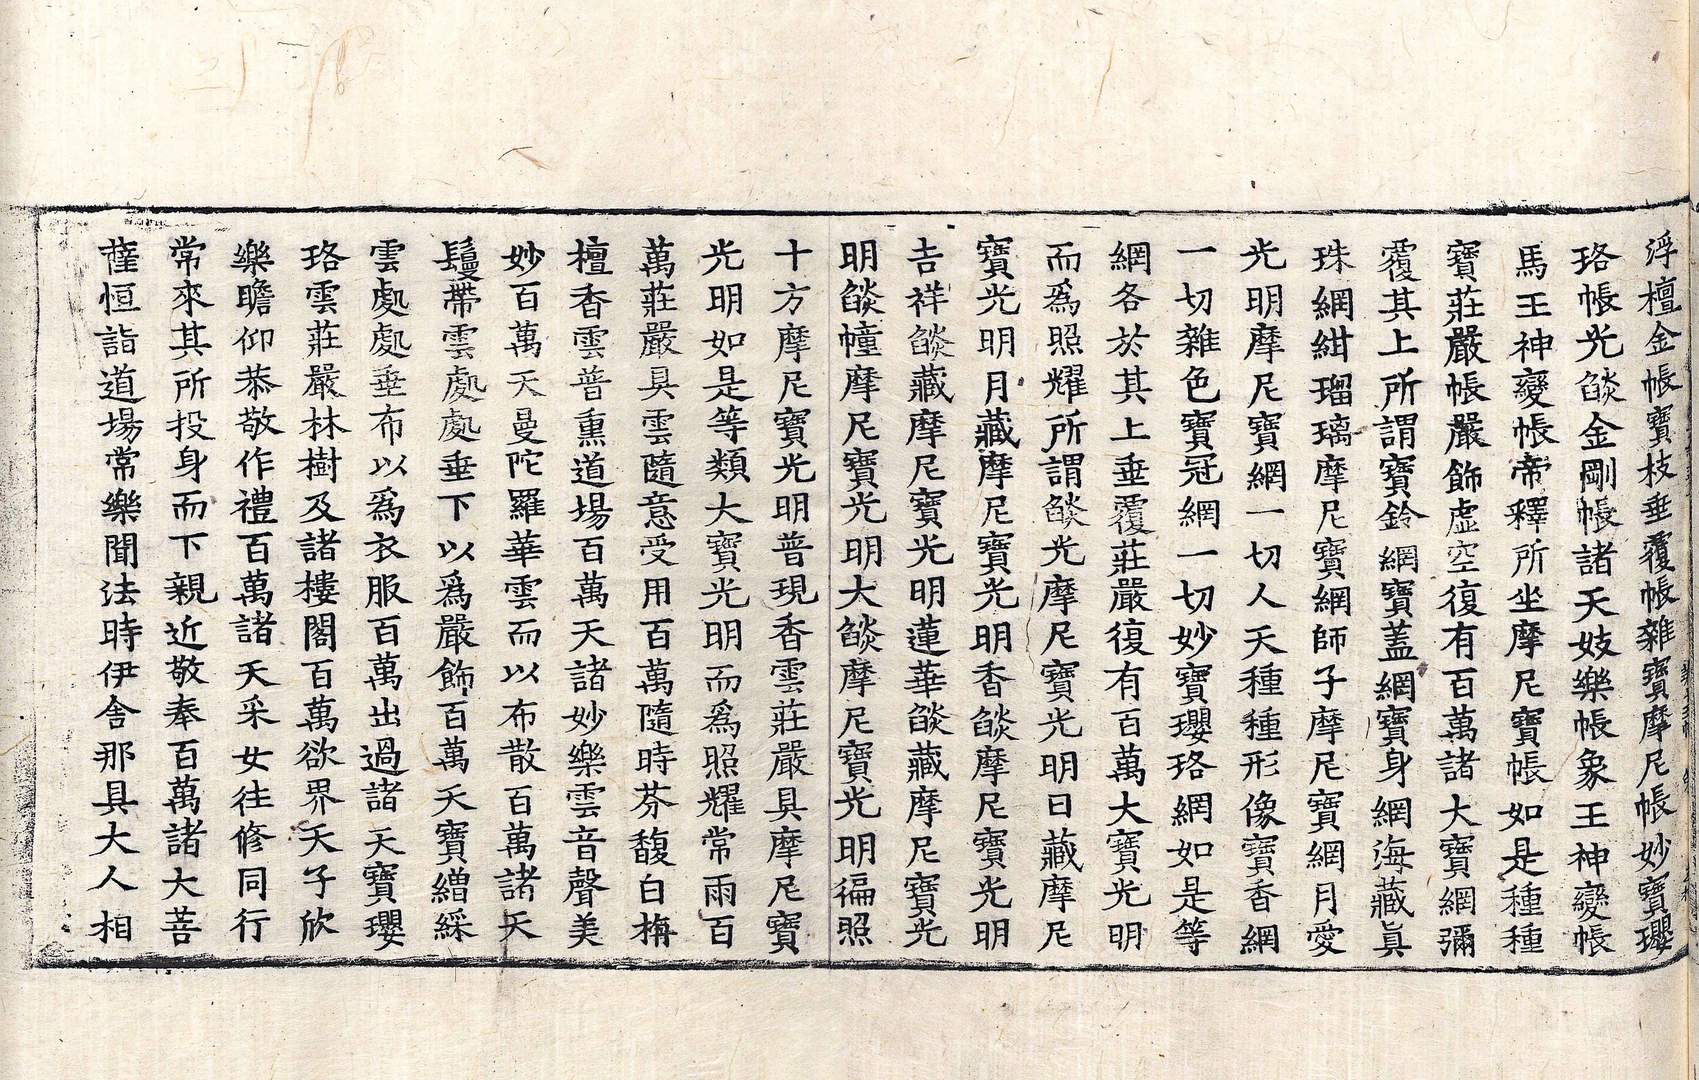 浮檀金帳寶枝垂覆帳雜寶摩尼帳妙寶瓔
珞帳光燄金剛帳諸天妓樂帳象王神變帳
馬王神變帳帝釋所坐摩尼寶帳如是種種
寶莊嚴帳嚴飾虛空復有百萬諸大寶網彌
覆其上所謂寶鈴網寶蓋網寶身網海藏真
珠網紺瑠璃摩尼寶網師子摩尼寶網月愛
光明摩尼寶網一切人天種種形像寶香網
一切雜色寶冠網一切妙寶瓔珞網如是等
網各於其上垂覆莊嚴復有百萬大寶光明
而為照耀所謂燄光摩尼寶光明日藏摩尼
寶光明月藏摩尼寶光明香燄摩尼寶光明
吉祥燄藏摩尼寶光明蓮華燄藏摩尼寶光
明燄幢摩尼寶光明大燄摩尼寶光明徧照
十方摩尼寶光明普現香雲莊嚴具摩尼寶
光明如是等類大寶光明而為照耀常雨百
萬莊嚴具雲隨意受用百萬隨時芬馥白栴
檀香雲普熏道場百萬天諸妙樂雲音聲美
妙百萬天曼陀羅華雲而以布散百萬諸天
鬘帶雲處處垂下以為嚴飾百萬天寶繒綵
雲處處垂布以為衣服百萬出過諸天寶瓔
珞雲莊嚴林樹及諸樓閣百萬欲界天子欣
樂瞻仰恭敬作禮百萬諸天采女往修同行
常來其所投身而下親近敬奉百萬諸大菩
薩恒詣道場常樂聞法時伊舍那具大人相